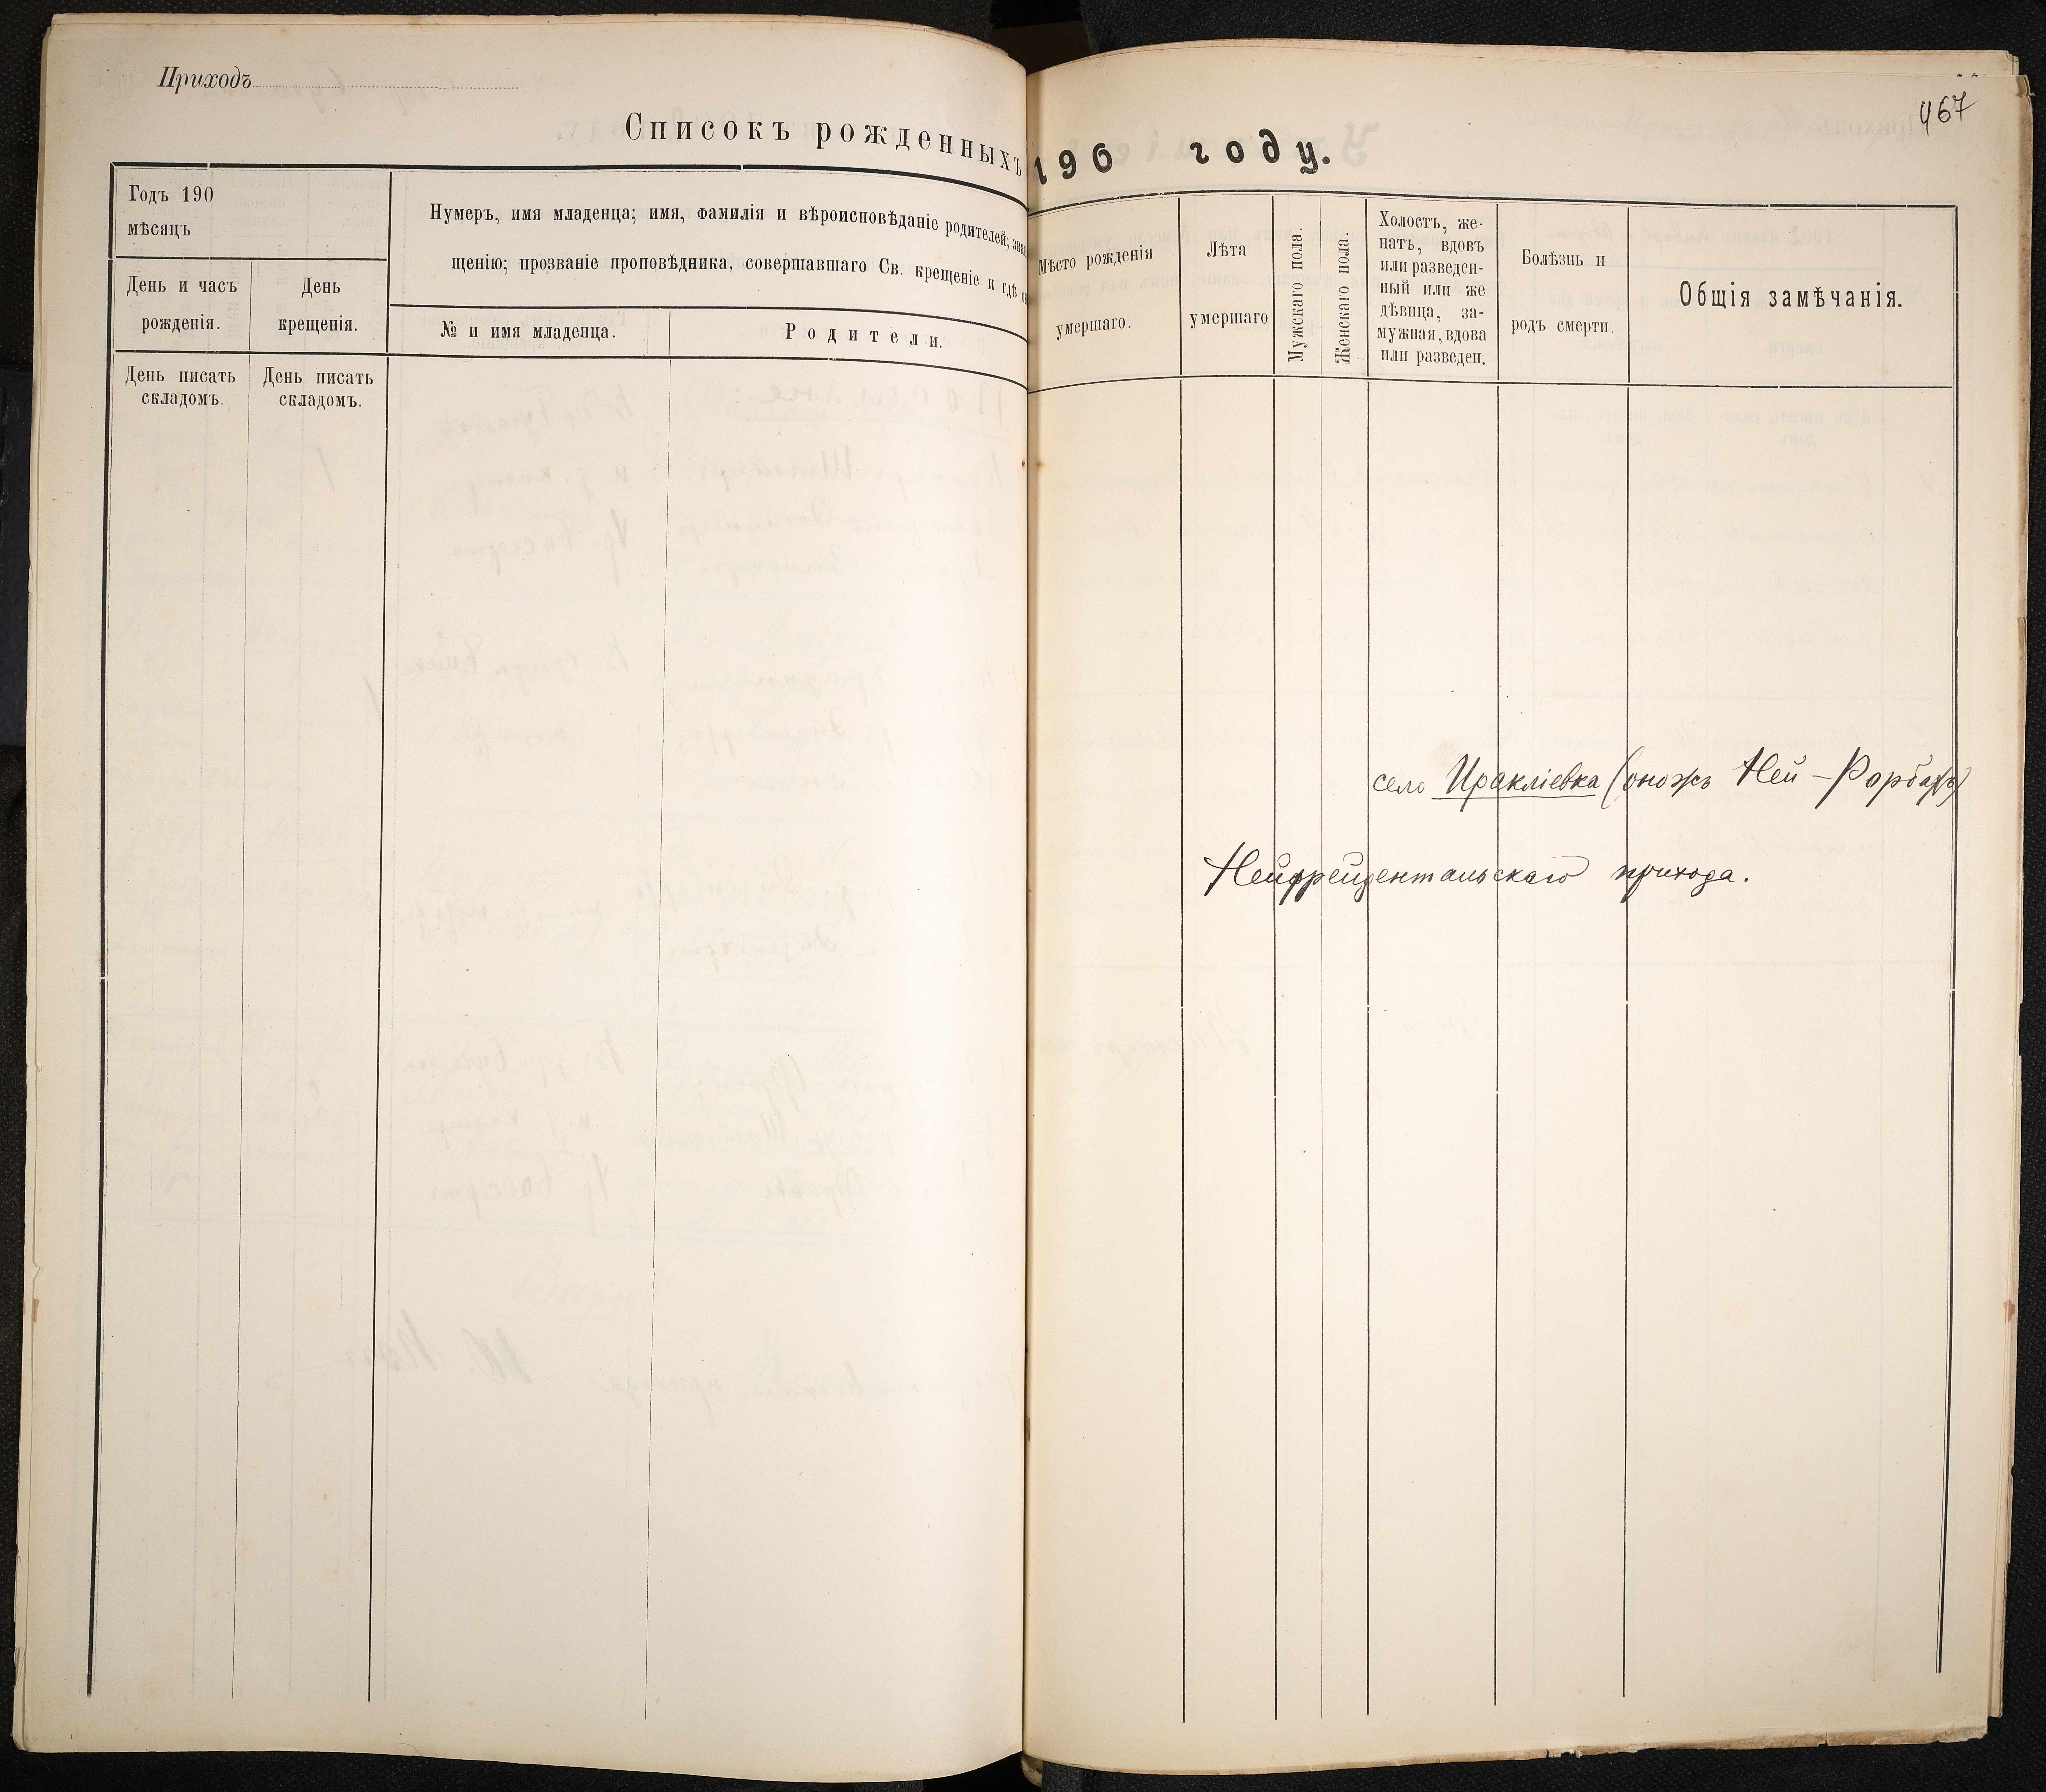 Приходъ
Списокъ рожденныхъ
Годъ 190
мѣсяцъ
Нумеръ, имя младенца; имя, фамилія и вѣроисповѣданіе родителей; зва
щенію; прозваніе проповѣдника, совершавшаго Св. крещеніе и гдѣ
День и часъ
рожденія.
День
крещенія.
№ и имя младенца.
Родители.
День писать
складомъ.
День писать
складомъ.
467
190 году.
Мѣсто рожденія
умершаго.
Лѣта
умершаго
Мужскаго пола.
Женскаго пола.
Холостъ, же-
натъ, вдовъ
или разведен-
ный или же
дѣвица, за-
мужная, вдова
или разведен.
Болѣзнь и
родъ смерти.
Общія замѣчанія.
село Иракліевка (оножъ Ней-Рорбахъ)
Нейфрейдентальскаго прихода.